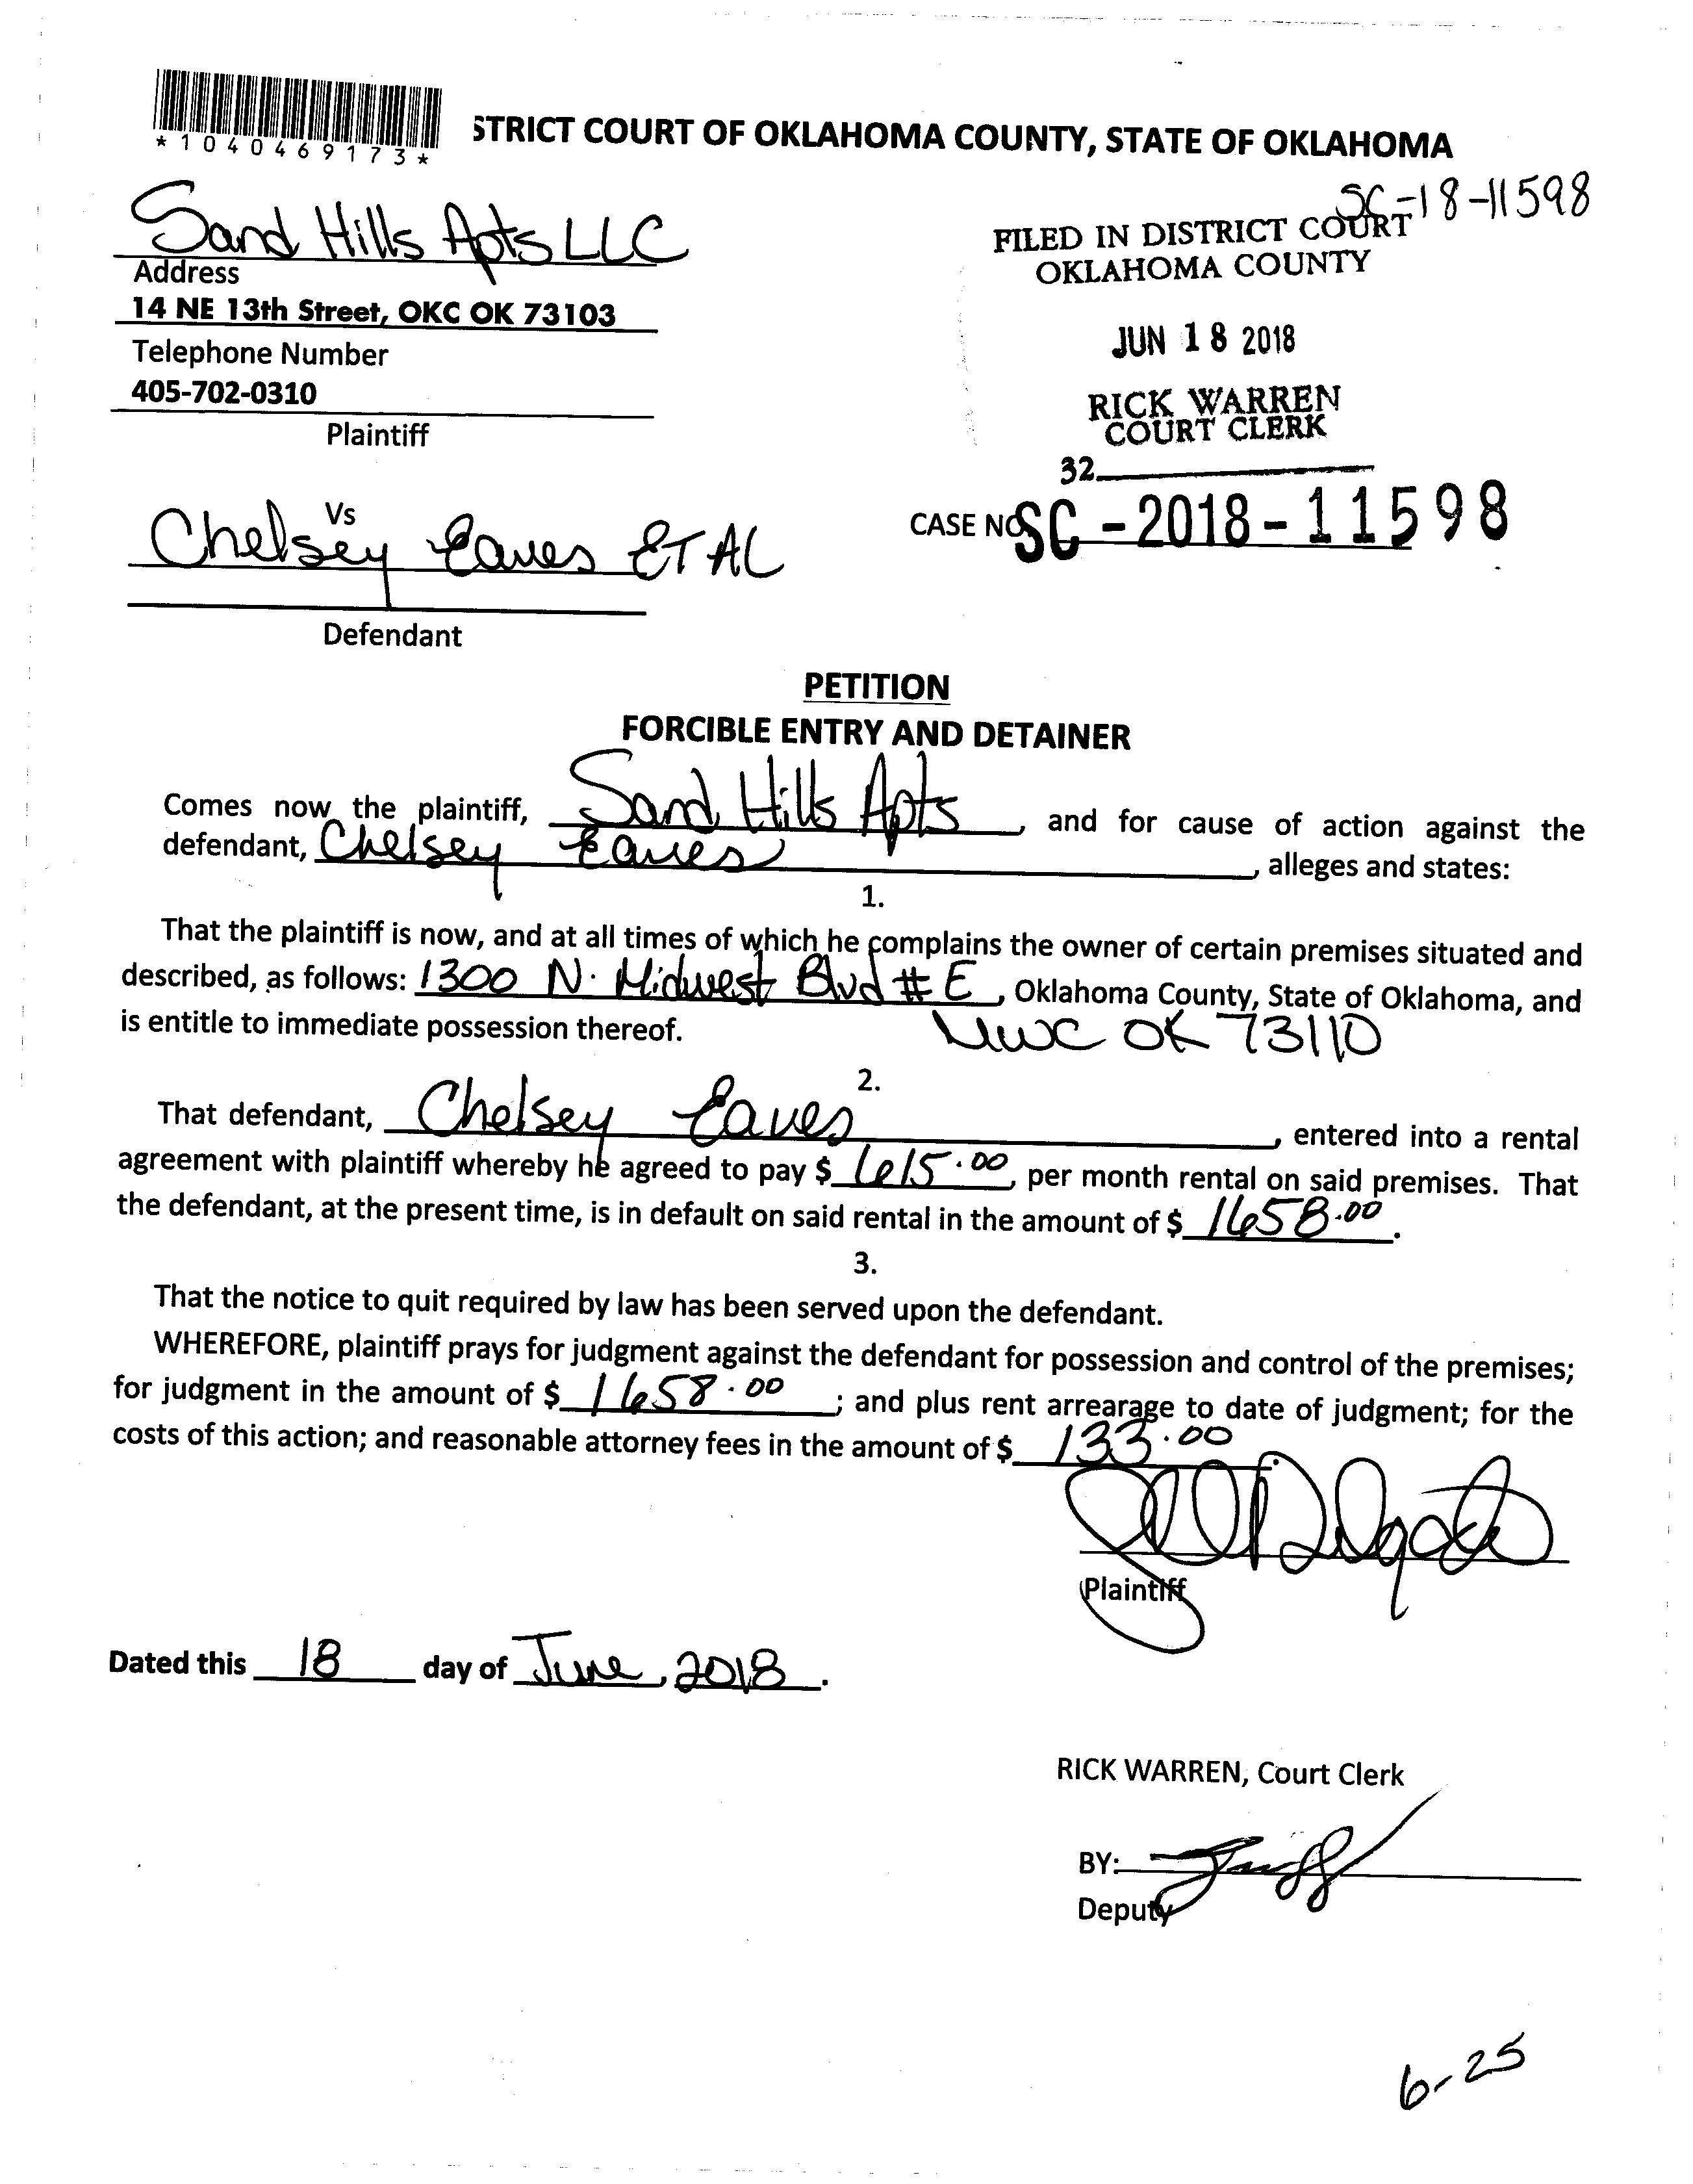 *1040469173*
STRICT COURT OF OKLAHOMA COUNTY, STATE OF OKLAHOMA
SC-18-11598
Sand Hills Apts LLC
Address
14 NE 13th Street, OKC OK 73103
Telephone Number
405-702-0310
Plaintiff
FILED IN DISTRICT COURT
OKLAHOMA COUNTY
JUN 18 2018
RICK WARREN
COURT CLERK
32
Vs
Chelsey Eaves ET AL
Defendant
CASE NO SC-2018-11598
PETITION
FORCIBLE ENTRY AND DETAINER
Comes now the plaintiff, Sand Hills Apts, and for cause of action against the
defendant, Chelsey Eaves, alleges and states:
1.
That the plaintiff is now, and at all times of which he complains the owner of certain premises situated and
described, as follows: 1300 N. Midwest Blvd # E, Oklahoma County, State of Oklahoma, and
is entitle to immediate possession thereof. MWC OK 73110
2.
That defendant, Chelsey Eaves, entered into a rental
agreement with plaintiff whereby he agreed to pay $ 615.00, per month rental on said premises. That
the defendant, at the present time, is in default on said rental in the amount of $ 1658.00.
3.
That the notice to quit required by law has been served upon the defendant.
WHEREFORE, plaintiff prays for judgment against the defendant for possession and control of the premises;
for judgment in the amount of $ 1658.00; and plus rent arrearage to date of judgment; for the
costs of this action; and reasonable attorney fees in the amount of $ 133.00.
Plaintiff
Dated this 18 day of June, 2018.
RICK WARREN, Court Clerk
BY:
Deputy
6-25